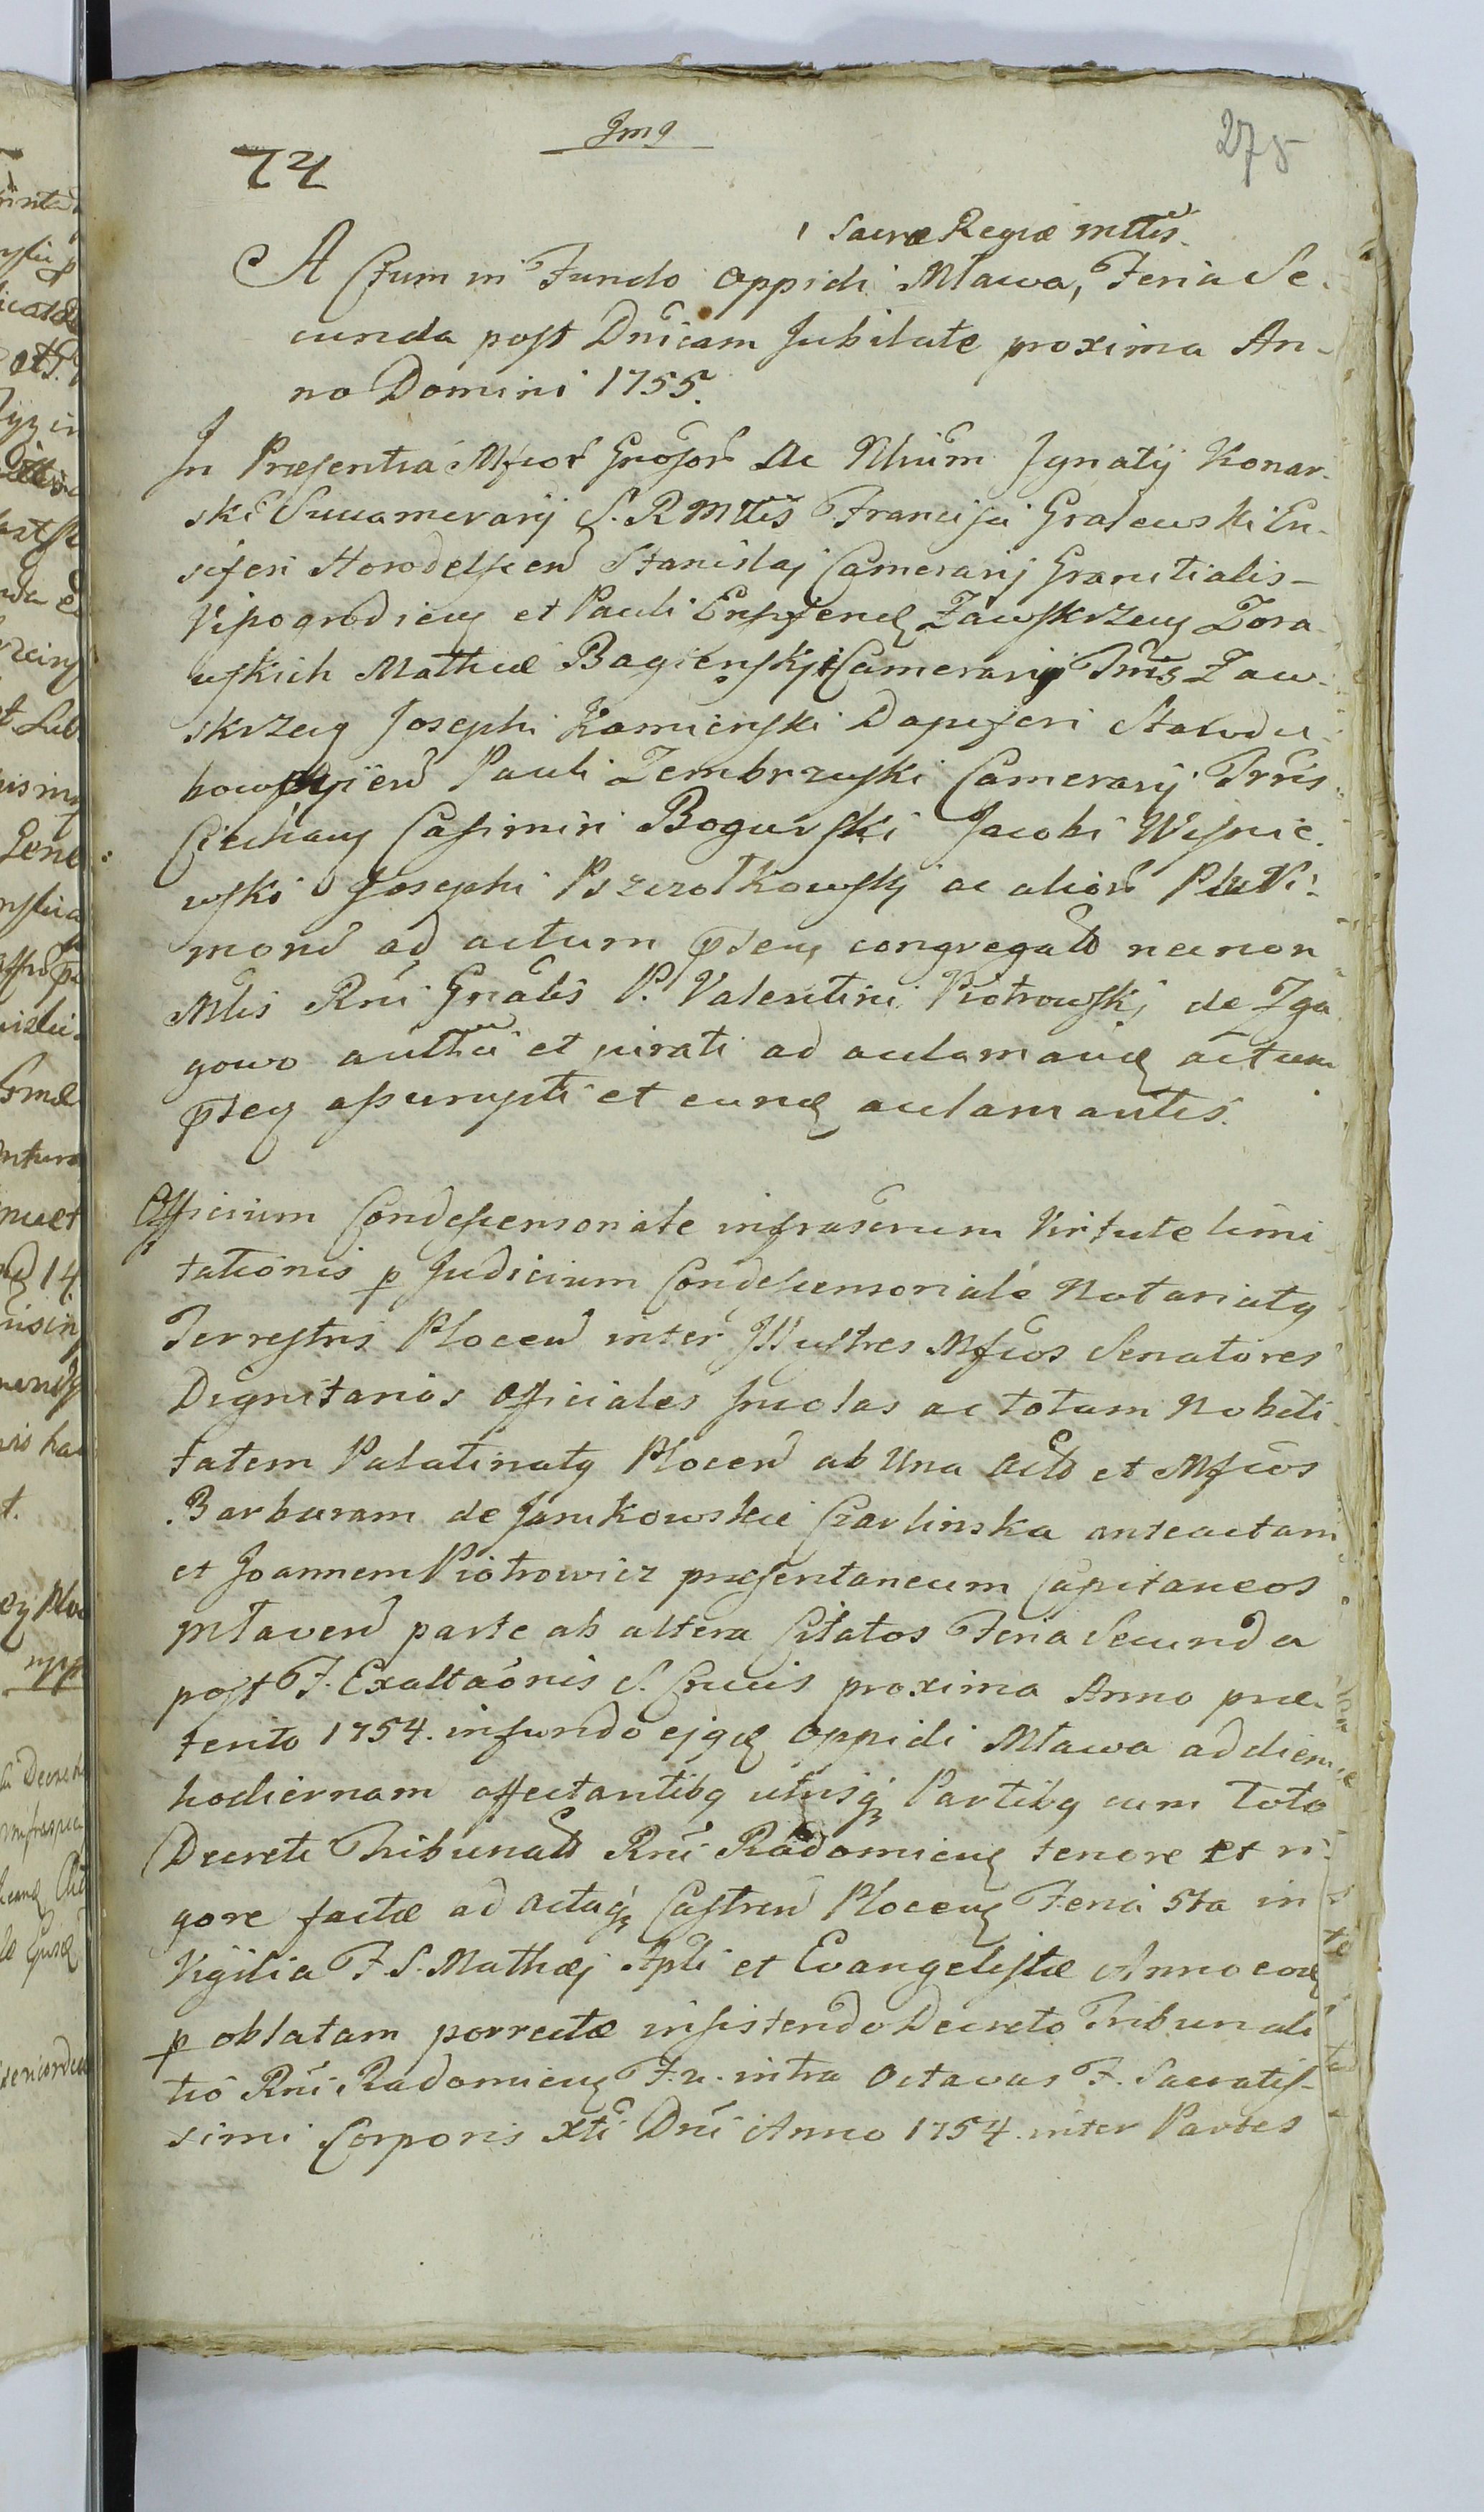 Img
74
275
Sacræ Regiæ Mttis
Actum in Fundo Oppidi Mława, Feria Se-
cunda post Dnicam Jubilate proxima An-
no Domini 1755.
In Præsentia Mfcor Grosor Ac Nlium Ignatij Konar-
ski Succamerarij S. R Mttis Francisci Gralewski En-
siferi Horodelscen Stanislaj Camerarij Granitialis
Viszogrodien et Pauli Zawskrzen Zora-
wskich Mathiæ Bagienskj Camerarij Trris Zaw-
skrzen Josephi Kamienski Dapiferi Starodu-
Pauli Zembrzuski Camerarij Trris
Ciechan Casimiri Bogurski Jacobi Wisnie-
wski Josephi Pszczołkowskj ac alior
ad actum pnten congregat necnon
Mlis Rni Gnalis P. Valentini Piotrowskj de Zga-
gowo authci et jurati ad aclamand actum
pnten assumpti et eund aclamantis.
Officium Condescensoriale infrascrium Virtute limi-
tationis p Judicium Condescensoriale Notariatq
Terrestris Plocen inter Illustres Mfcos Senatores
Dignitarios Officiales Incolas ac totam Nobili-
tatem Palatinatq Plocen ab Una Act et Mfcos
Barbaram de Jankowskie Czarlinska anteactam
et Joannem Piotrowicz præsentaneum Capitaneos
Mlaven parte ab altera Citatos Feria Secunda
post F. Exaltaonis S. Crucis proxima Anno præ-
terito 1754. in fundo ejqd Oppidi Mława ad diem
hodiernam affectantibq utrisqz Partibq cum toto
Decreti Tribunal Rni Radomien tenore et ri-
gore factæ ad Actaqz Castren Plocen Feria 5ta in
Vigilia F. S. Mathæj Apli et Evangelistæ Anno eod
p oblatam porrectæ insistendo Decreto Tribunali
tio Rni Radomien F. 2. intra Octavas F. Sacratis-
simi Corporis Xti Dni Anno 1754. inter Partes